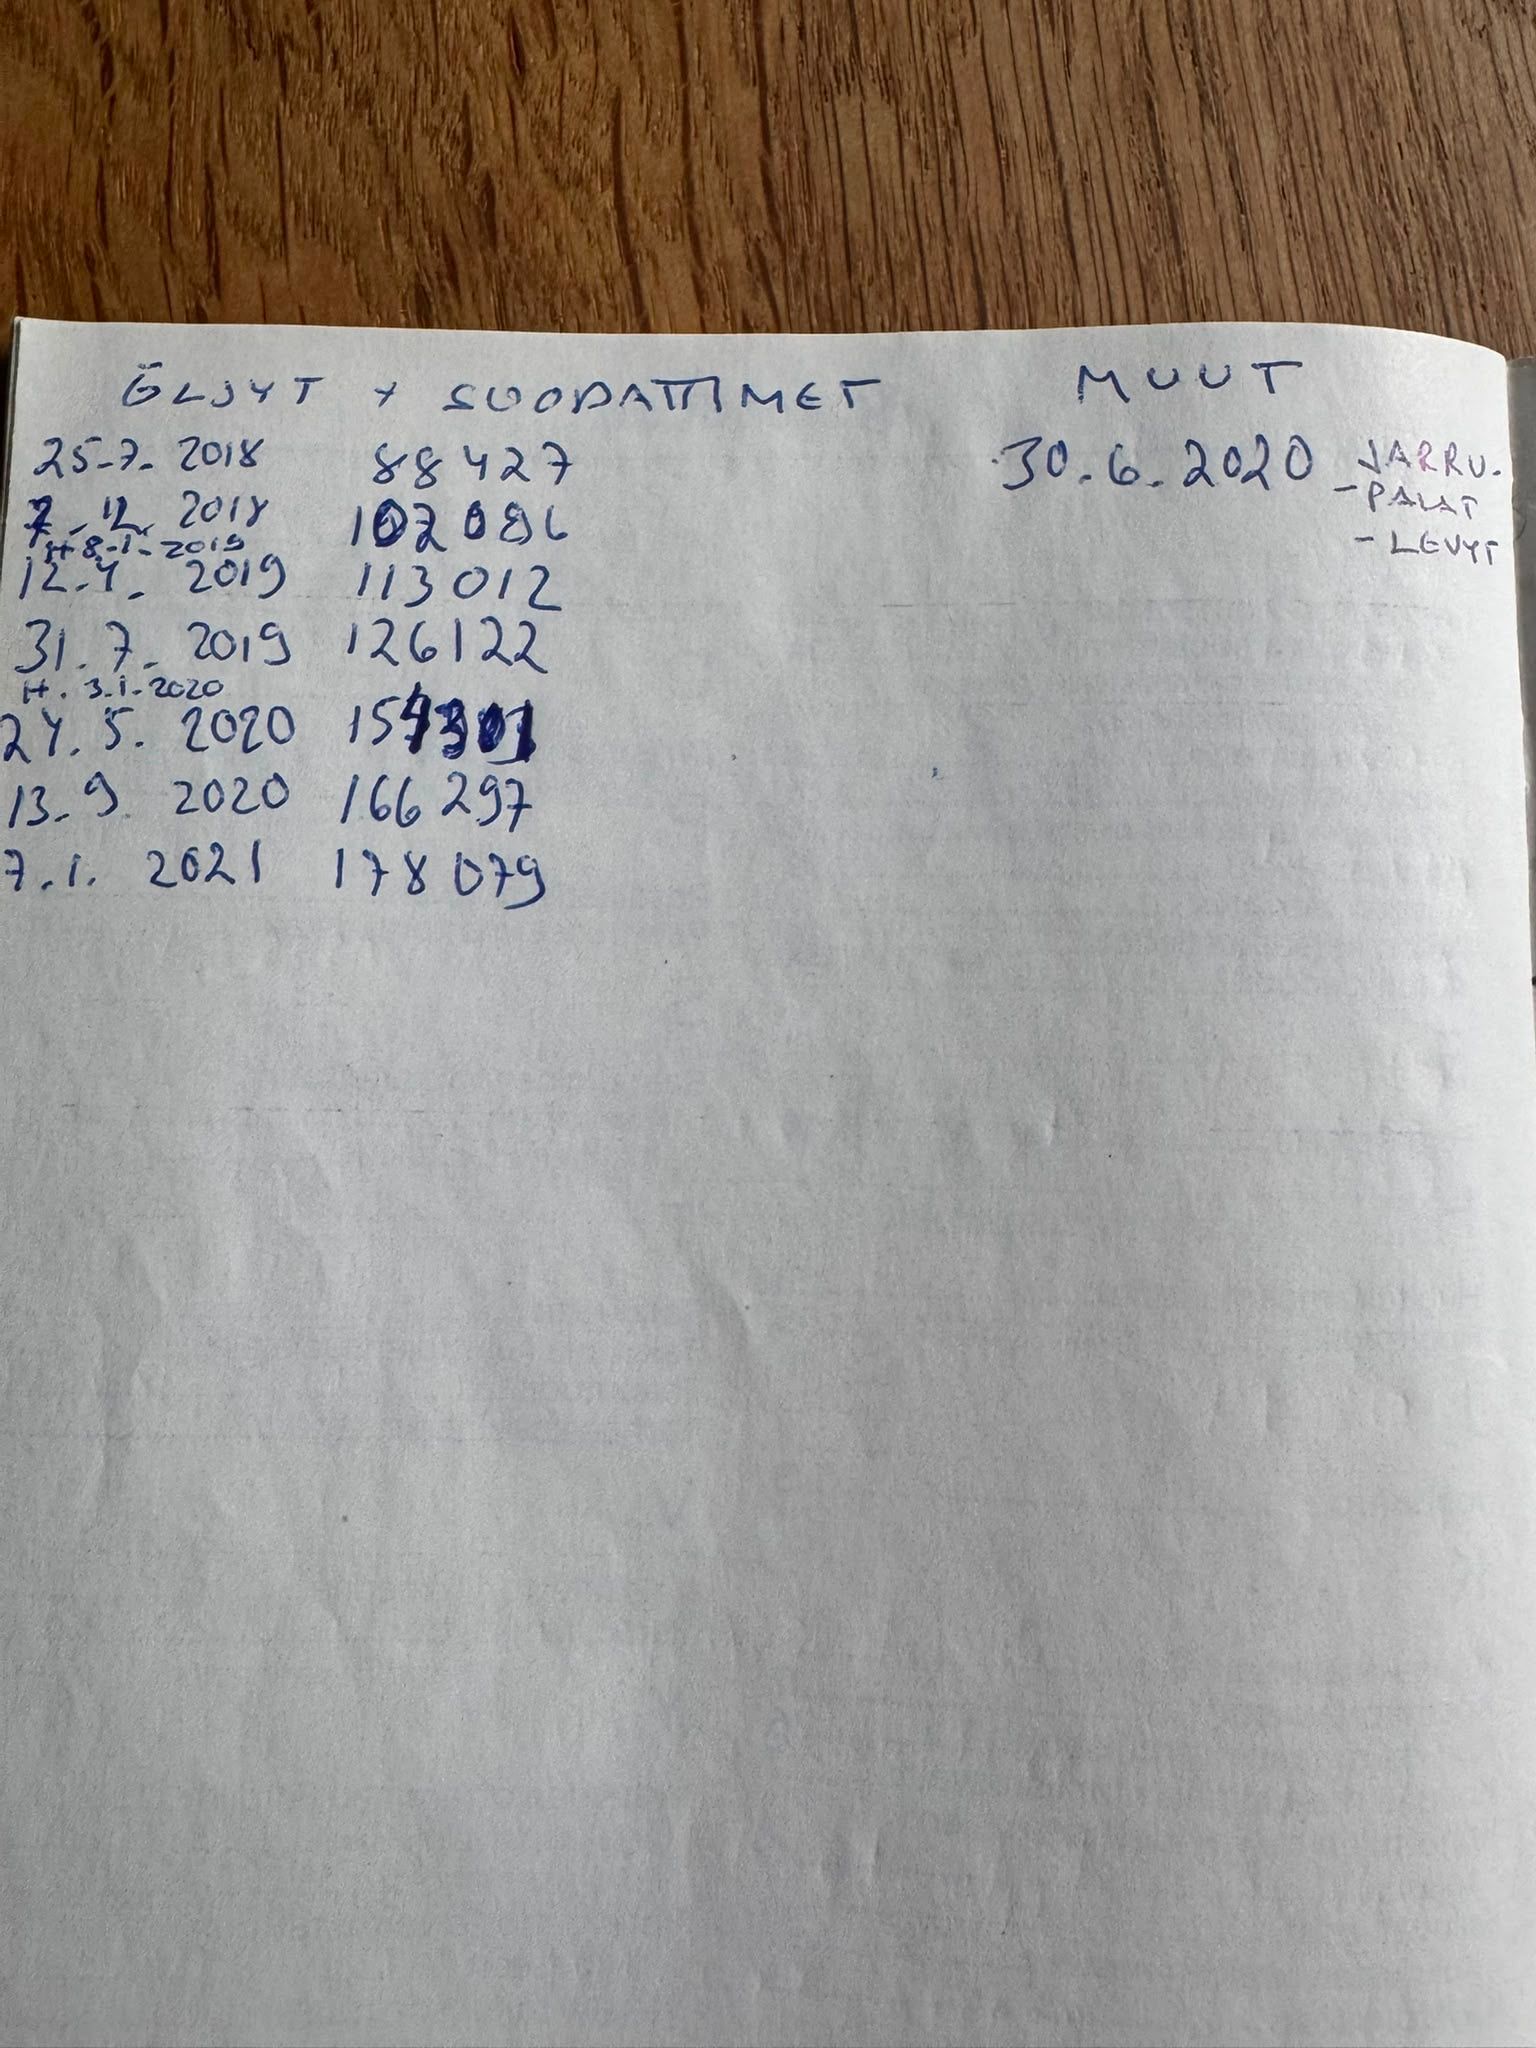 ÖLJYT + SUODATTIMET
25.7. 2018 88 427
7.12. 2018 102 086
H 8.1. 2019
12.4. 2019 113 012
31.7. 2019 126 122
H. 3.1.2020
24.5. 2020
13.9. 2020 166 297
7.1. 2021 178 079
MUUT
30.6.2020 JARRU-
- PALAT
- LEVYT